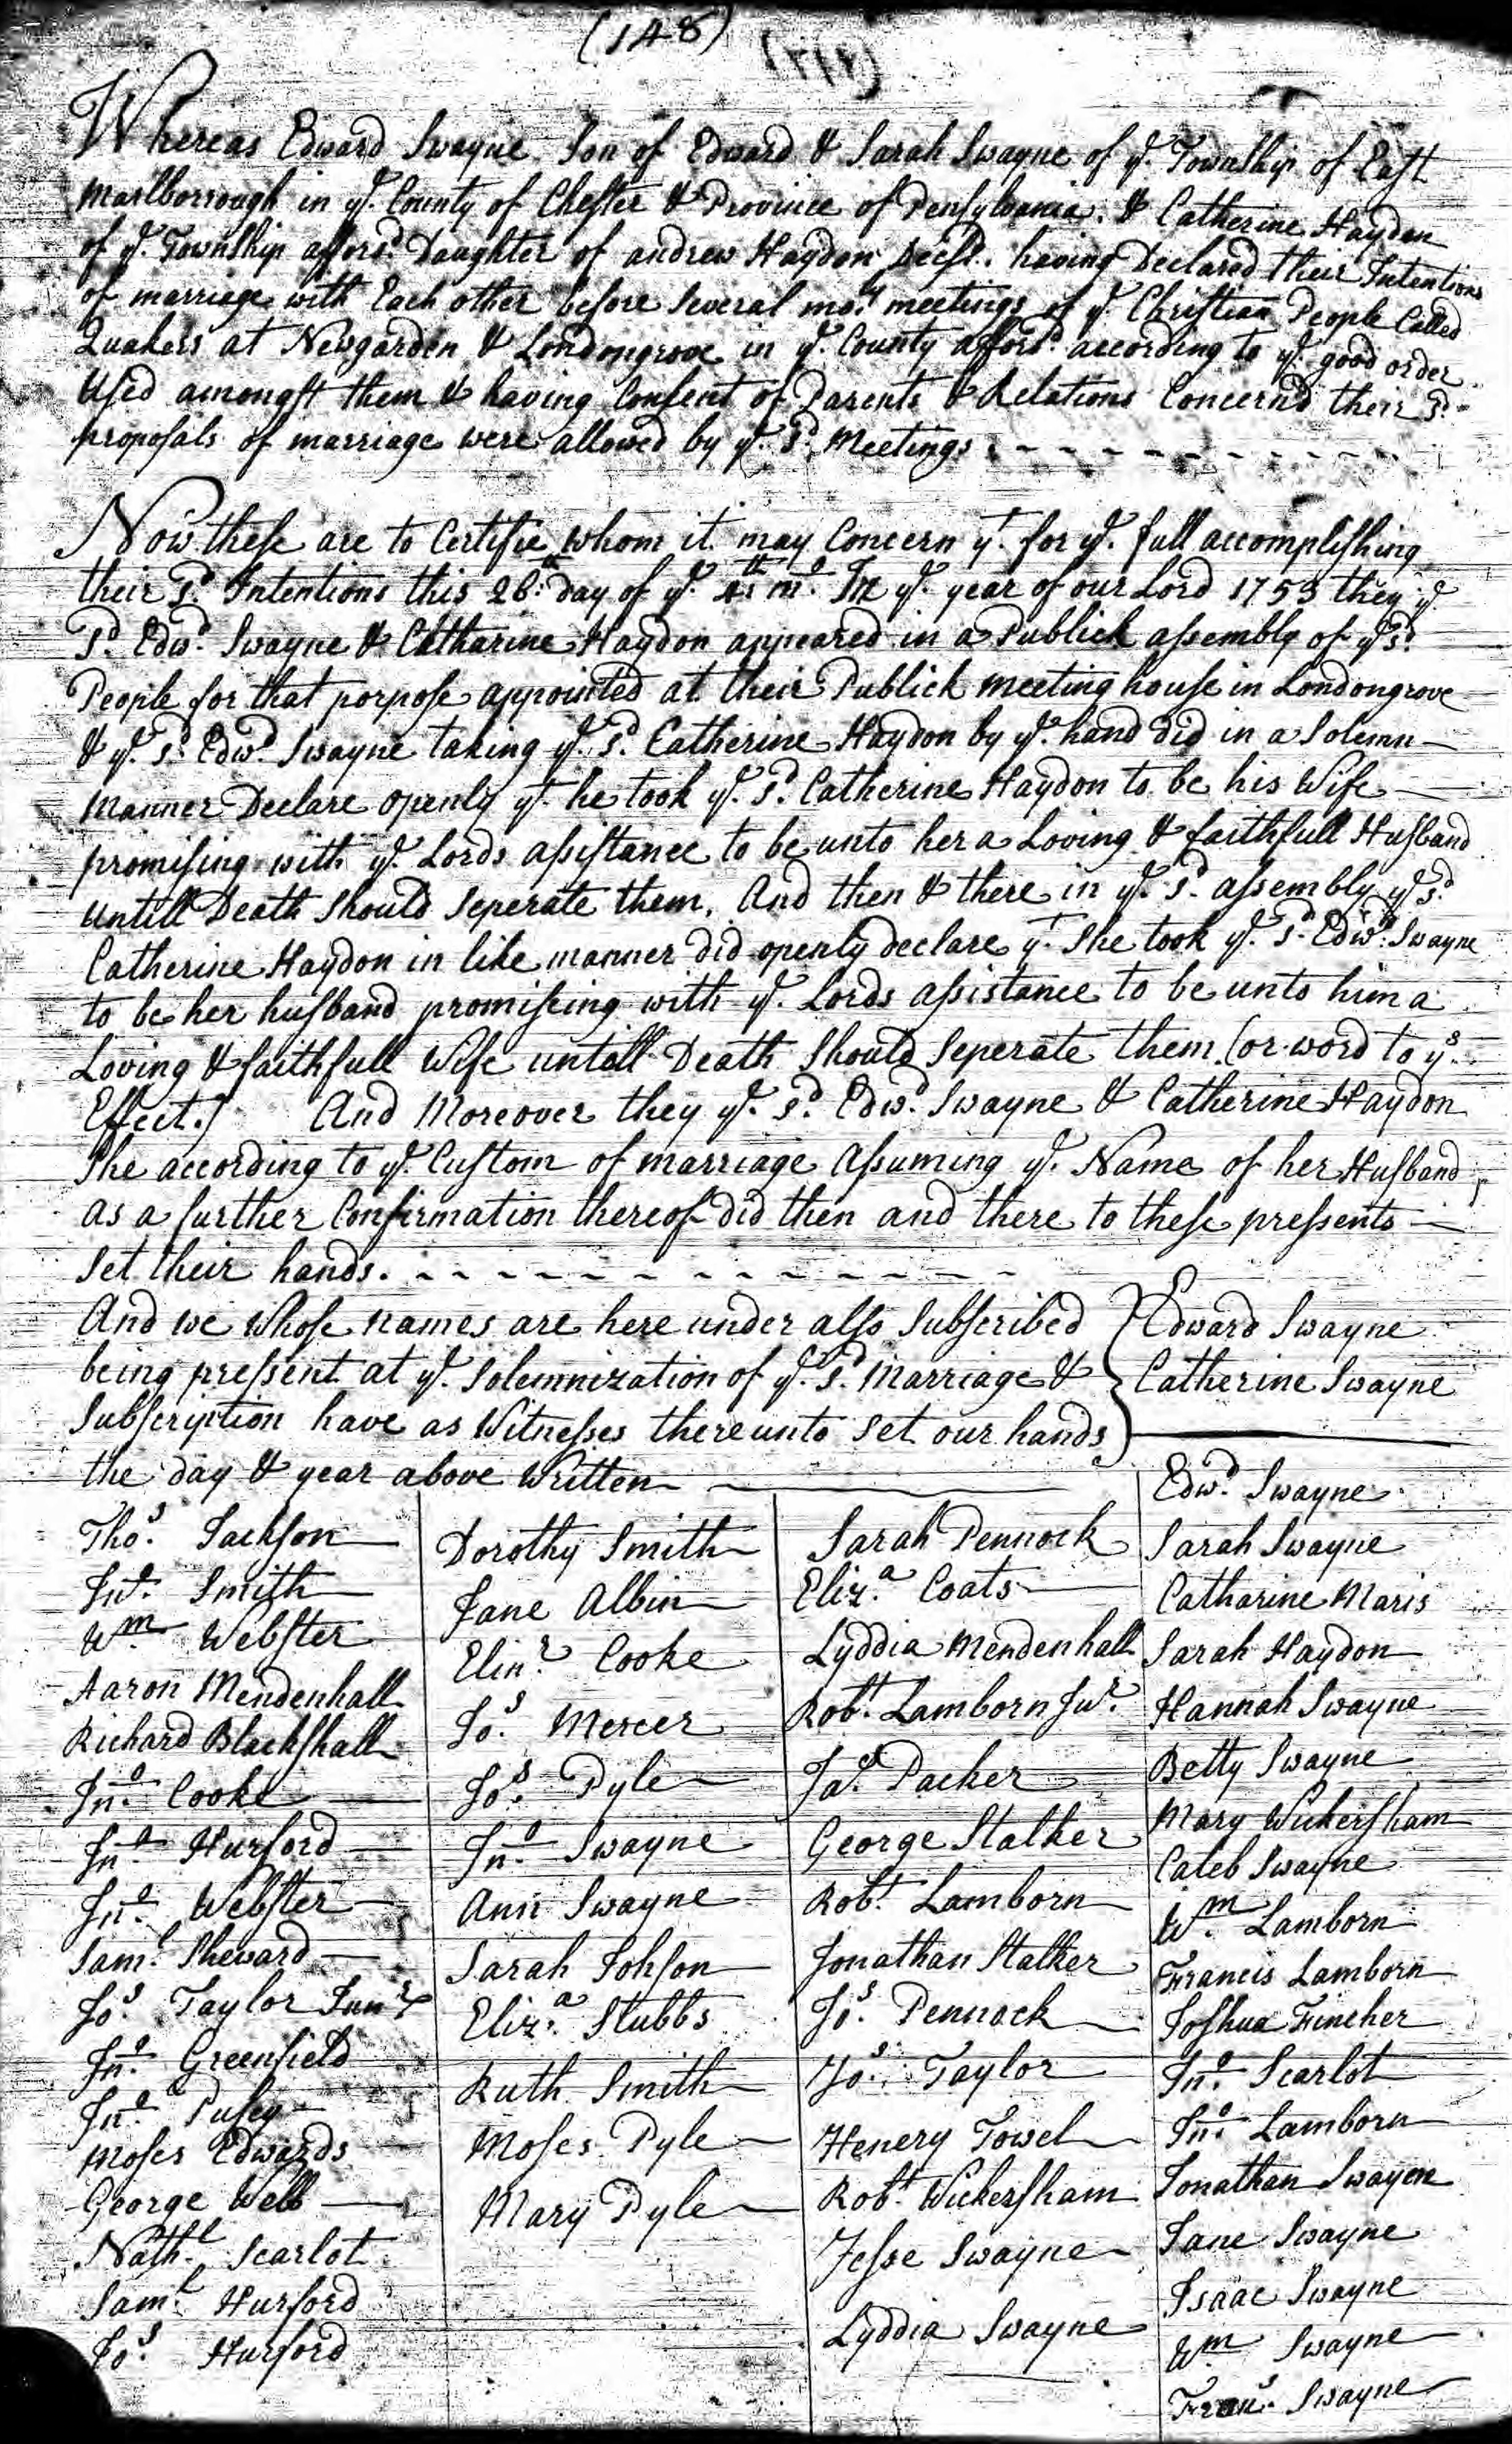 (148)
Whereas Edward Swayne Son of Edward & Sarah Swayne of ye. Township of East
Marlborrough in ye. County of Chester & Province of Pensylvania. & Catherine Haydon
of ye. Township afforsd. Daughter of andrew Haydon Decsd. having Declared their Intentions
of marriage with Each other before Several mo.ly meetings of ye. Christian People Called
Quakers at Newgarden & Londongrove in ye. County afforsd. according to ye. good order
Used amongst them & having Consent of Parents & Relations Concernd their sd.
proposals of marriage were allowed by ye. sd. Meetings
Now these are to Certifie whom it may Concern yt. for ye. full accomplishing
their sd. Intentions this 26th. day of ye. 4th. mo. In ye. year of our Lord 1753 they ye
sd. Edwd. Swayne & Catharine Haydon appeared in a Publick assembly of ye sd.
People for that porpose appointed at their Publick meeting house in Londongrove
& ye. sd. Edwd. Swayne taking ye. sd. Catherine Haydon by ye. hand did in a Solemn
Manner Declare openly yt. he took ye. sd. Catherine Haydon to be his Wife
promising with ye. Lords assistance to be unto her a Loving & faithfull Husband
untill Death Should Seperate them. And then & there in ye. sd. assembly ye sd.
Catherine Haydon in like manner did openly declare yt. She took ye. sd. Edwd. Swayne
to be her husband promiseing with ye. Lords assistance to be unto him a
Loving & faithfull Wife untill Death Should Seperate them (or word to ys.
Effect.) And Moreover they ye. sd. Edwd. Swayne & Catherine Haydon
She according to ye. Custom of marriage Assuming ye. Name of her Husband
as a further Confirmation thereof did then and there to these pressents
Set their hands.
And we Whose names are here under also Subscribed
being pressent at ye. Solemnization of ye. sd. Marriage &
Subscription have as Witnesses thereunto set our hands
the day & year above Written
Edward Swayne
Catherine Swayne
Thos. Jackson
Jno. Smith
Wm. Webster
Aaron Mendenhall
Richard Blackshall
Jno. Cooke
Jno. Hurford
Jno. Webster
Saml. Sheward
Jos. Taylor Junr.
Jno. Greenfield
Jno. Pusey
Moses Edwards
George Webb
Nathl. Scarlot
Saml. Hurford
Jos. Hurford
Dorothy Smith
Jane Albin
Elinr. Cooke
Jos. Mercer
Jos. Pyle
Jno. Swayne
Ann Swayne
Sarah Johson
Eliza. Stubbs
Ruth Smith
Moses Pyle
Mary Pyle
Sarah Pennock
Eliza. Coats
Lyddia Mendenhall
Robt. Lamborn Jur.
Jas. Packer
George Stalker
Robt. Lamborn
Jonathan Stalker
Jos. Pennock
Jos. Taylor
Henery Towel
Robt. Wickersham
Jesse Swayne
Lyddia Swayne
Edwd. Swayne
Sarah Swayne
Catharine Maris
Sarah Haydon
Hannah Swayne
Betty Swayne
Mary Wickersham
Caleb Swayne
Wm. Lamborn
Francis Lamborn
Joshua Fincher
Jno. Scarlot
Jno. Lamborn
Jonathan Swayen
Jane Swayne
Isaac Swayne
Wm Swayne
Frans. Swayne